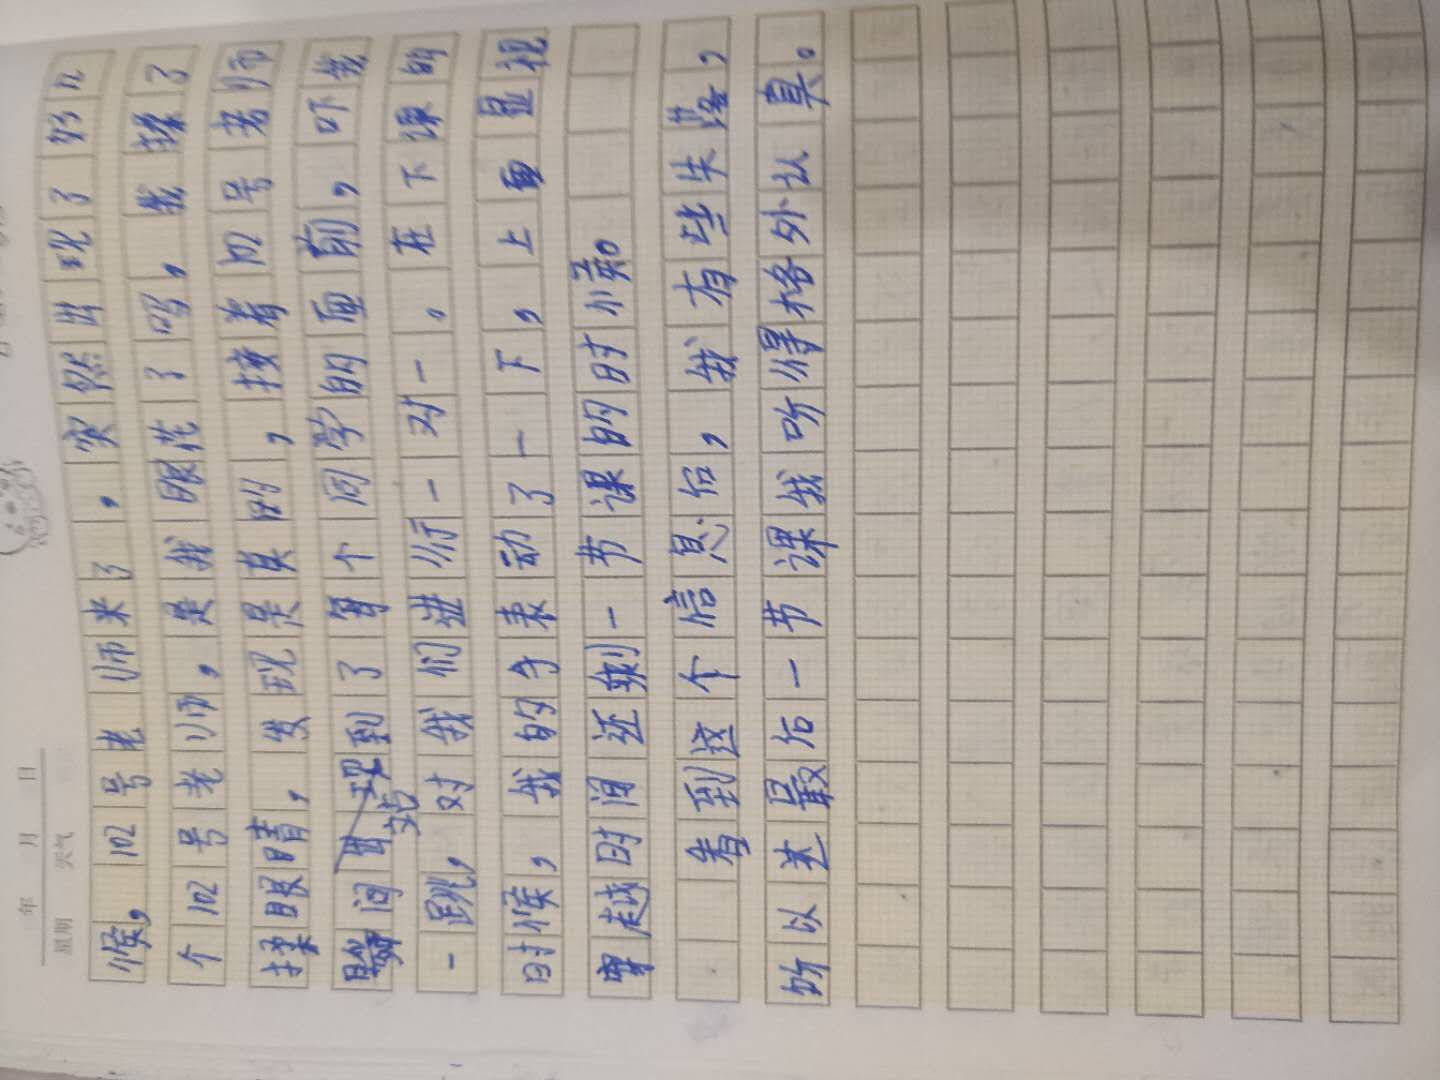 年 月 日
星期 天气
候，102号老师来了，突然出现了好几
个102号老师，是我眼花了吗，我揉了
揉眼睛，发现是真的，接着102号老师
瞬间站到了每个同学的面前，吓我
一跳，对我们进行一对一。在下课的
时候，我的手表动了一下，上面显视
穿越时间还剩一节课的时候。
看到这个信息后，我有些失落，
所以差最后一节课我听得格外认真。